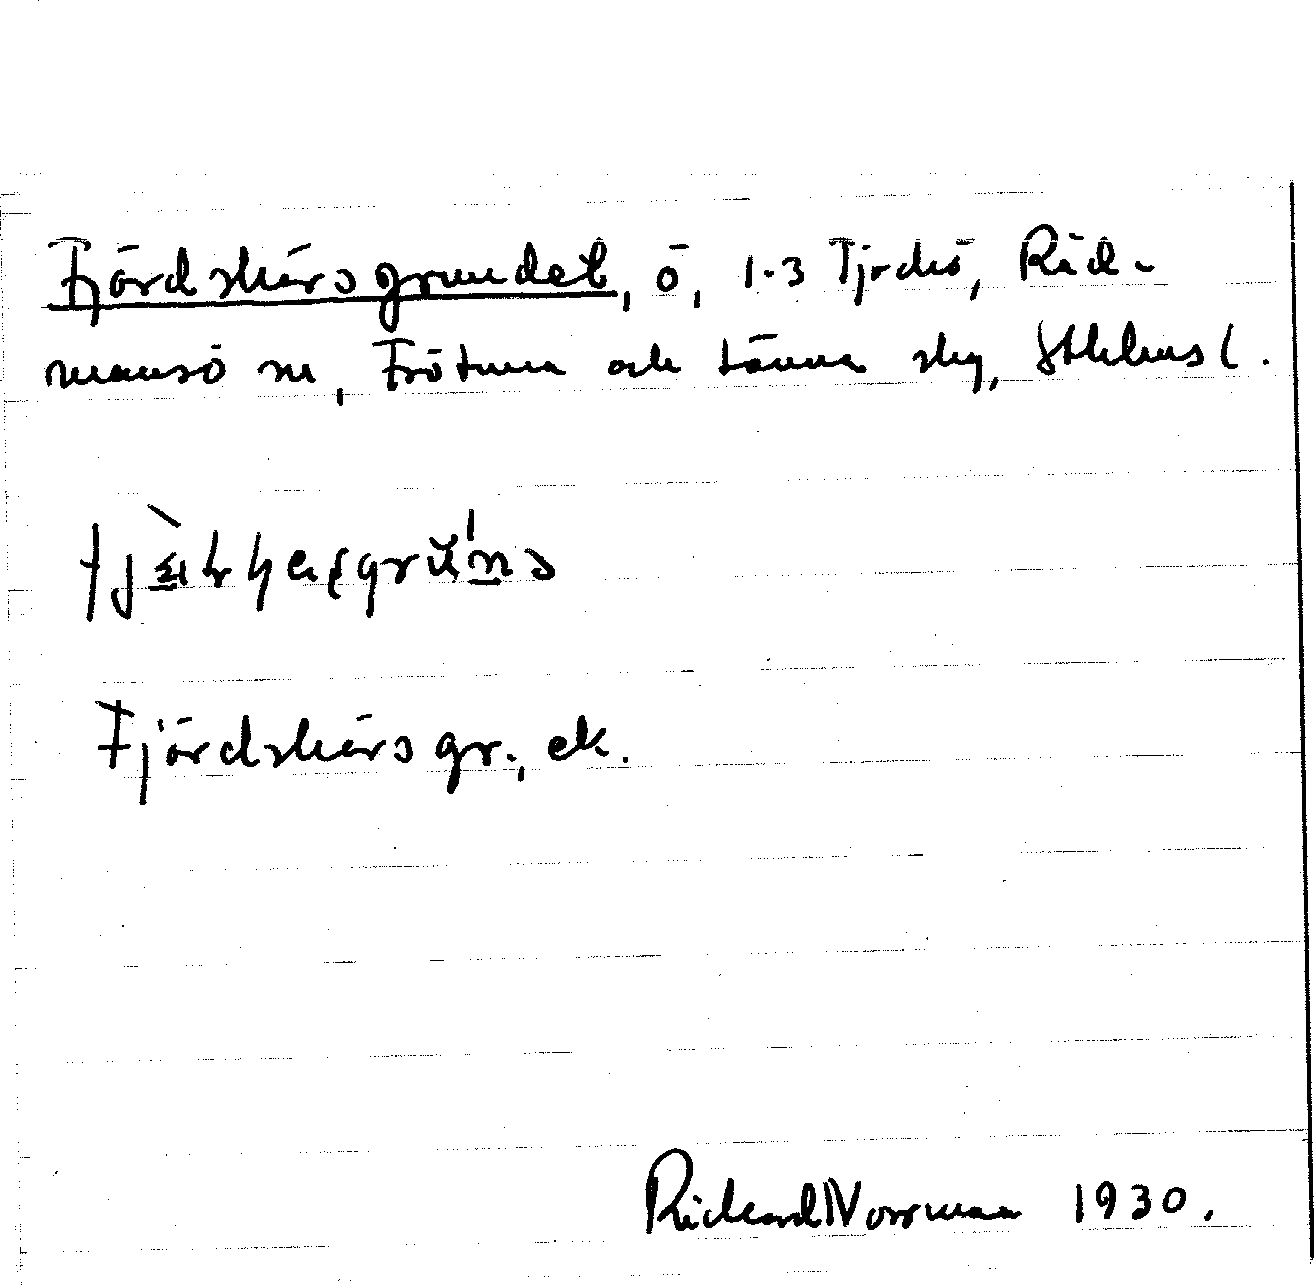 Fjärdskärsgrundet, ö, 1-3 Tjockö, Råd-
mansö sn, Frötuna och Länna slg, Sthlms l.
Fjärdskärsgr., ek.
Rickard Norrman 1930.